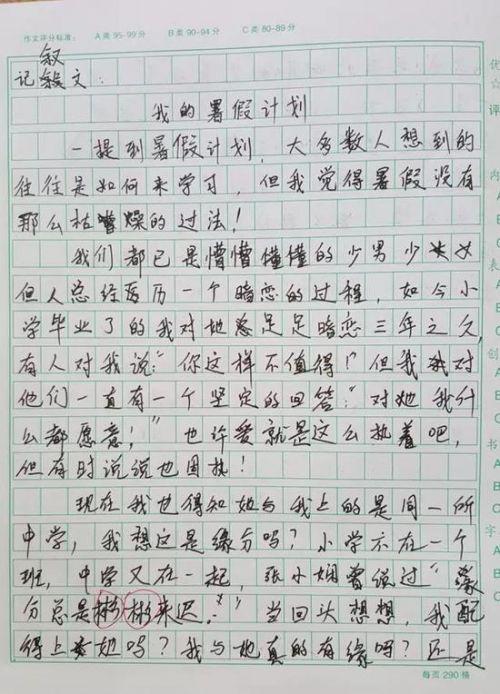 作文评分标准： A类95-99分 B类90-94分 C类80-89分
叙
记叙文：
我的暑假计划
一提到暑假计划，大多数人想到的
往往是如何来学习，但我觉得暑假没有
那么枯嘈燥的过法！
我们都已是懵懵懂懂的少男少女
但人总经历一个暗恋的过程，如今小
学毕业了的我对她足足暗恋三年之久，
有人对我说：“你这样不值得！”但我对
他们一直有一个坚定的回答：“对她我什
么都愿意！”也许爱就是这么执着吧，
但有时说说也固执！
现在我也得知她与我上的是同一所
中学，我想这是缘分吗？小学不在一个
班，中学又在一起，张小娴曾说过“缘
分总是彬彬来迟。”当回头想想，我配
得上她吗？我与她真的有缘吗？还是
每页290格
优
☆
评
内
A
B
C
表
A
B
C
创
A
B
C
书
A
B
C
字
A
B